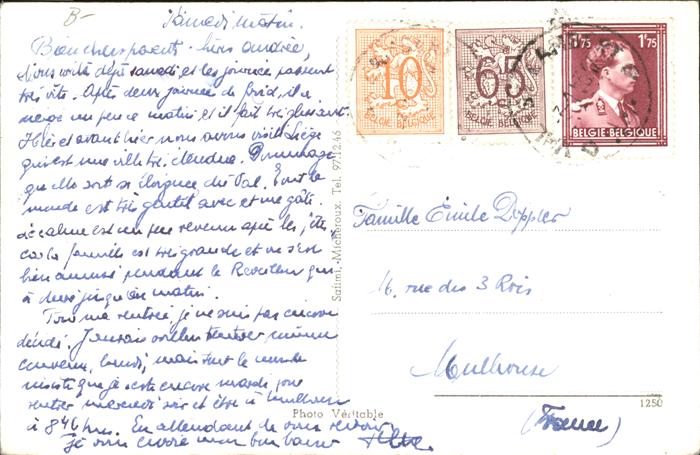 B-
Samedi matin.
Bien chers parents, chère Andrée,
Nous voilà déjà samedi, et les journées passent
très vite. Après deux journées de froid, il a
neigé un peu ce matin et il fait très glissant.
Hier et avant hier nous avons visité Liège
qui est une ville très étendue. Dommage
qu'elle soit si éloignée du Val. Tout le
monde est très gentil avec et me gâte.
Le calme est un peu revenu après les fêtes
car la famille est très grande et on s'est
bien amusé pendant le Réveillon
à deux jusqu'au matin.
Pour ma rentrée, je ne suis pas encore
décidé. J'aurais voulu rentrer comme
convenu, lundi, mais tout le monde
insiste que je reste encore mardi pour
rentrer mercredi soir et être à Mulhouse
à 8 46 hrs. En attendant de vous revoir
je vous envoie mon bon baiser
10
BELGIE BELGIQUE
65
BELGIE BELGIQUE
1F75 1F75
BELGIE-BELGIQUE
Famille Émile Dippler
16, rue des 3 Rois
Mulhouse
(France)
Safimi, Micheroux. Tel. 97.12.46
Photo Véritable
1250